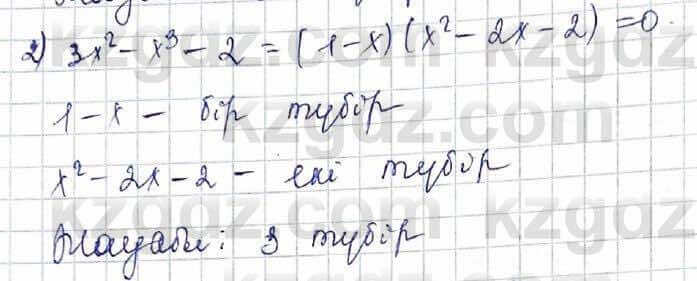 2) 3x² - x³ - 2 = (1-x)(x² - 2x - 2) = 0.
1 - x - бір түбір
x² - 2x - 2 - екі түбір
Жауабы: 3 түбір
kzgdz.com